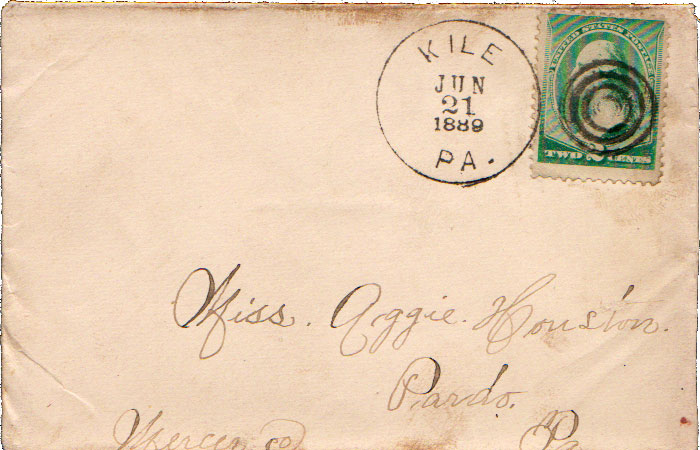 KILE
JUN
21
1889
PA.
UNITED STATES POSTAGE
TWO 2 CENTS
Miss. Aggie. Houston.
Pardo.
Mercer. co Pa